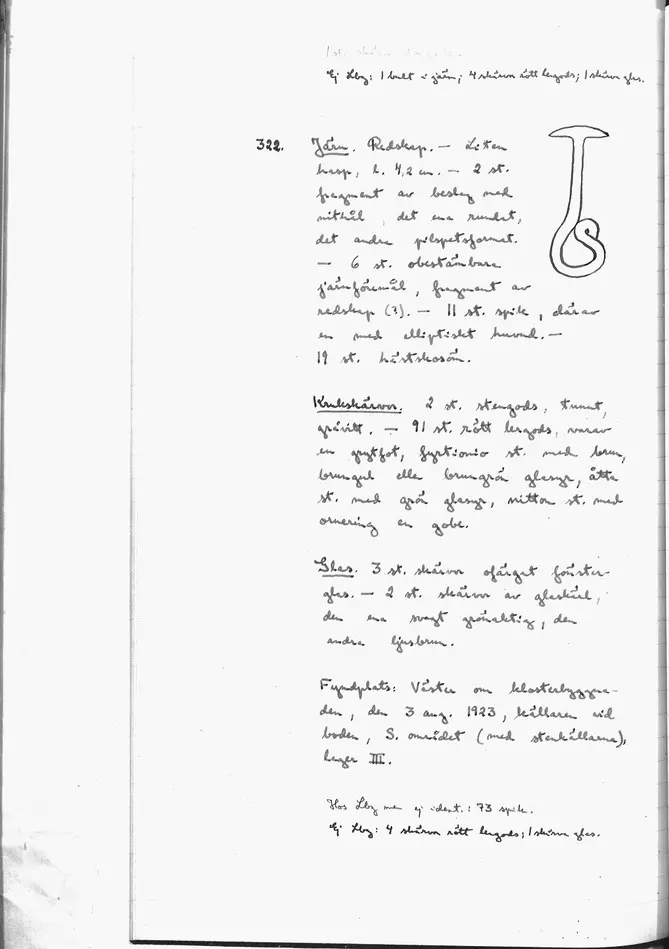 1 st. skärva
Ej Lbg: 1 bult i järn; 4 skärvor rött lergods; 1 skärva glas.
322. Järn. Redskap. — Liten
hasp, l. 4,2 cm. — 2 st.
fragment av beslag med
nithål, det ena rundat,
det andra pilspetsformat.
— 6 st. obestämbara
järnföremål, fragment av
redskap (?). — 11 st. spik, därav
en med elliptiskt huvud. —
19 st. hästskosöm.
Krukskärvor. 2 st. stengods, tunnt,
gråvitt. — 91 st. rött lergods, varav
en grytfot, fyrtionio st. med brun,
brungul eller brungrön glasyr, åtta
st. med grön glasyr, nitton st. med
ornering en gobe.
Glas. 3 st. skärvor ofärgat fönster-
glas. — 2 st. skärvor av glaskärl,
den ena svagt grönaktig, den
andra ljusbrun.
Fyndplats: Väster om klosterbyggna-
den, den 3 aug. 1923, källaren vid
boden, S. området (med stenkällarna),
lager III.
Hos Lbg men ej ident.: 73 spik.
Ej Lbg: 4 skärvor rött lergods; 1 skärva glas.